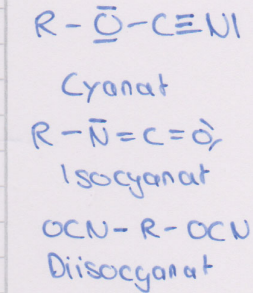 R-O̲̅-C≡N|
Cyanat
R-N̅=C=O
Isocyanat
OCN-R-OCN
Diisocyanat